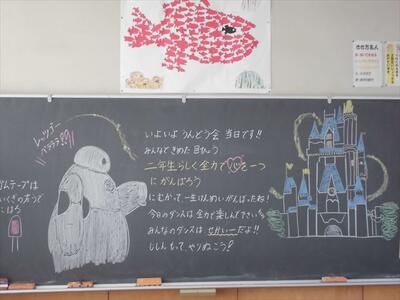 いよいよ うんどう会 当日です!!
みんなできめた 目ひょう
二年生らしく 全力で 心を一つ
に がんばろう
にむかって 一生けんめい がんばったね!
今日のダンスは 全力で 楽しんで下さい
みんなのダンスは せかい一だよ!!
じしんもって、やりぬこう!
レッツデー
バラララ!!
ガムテープは